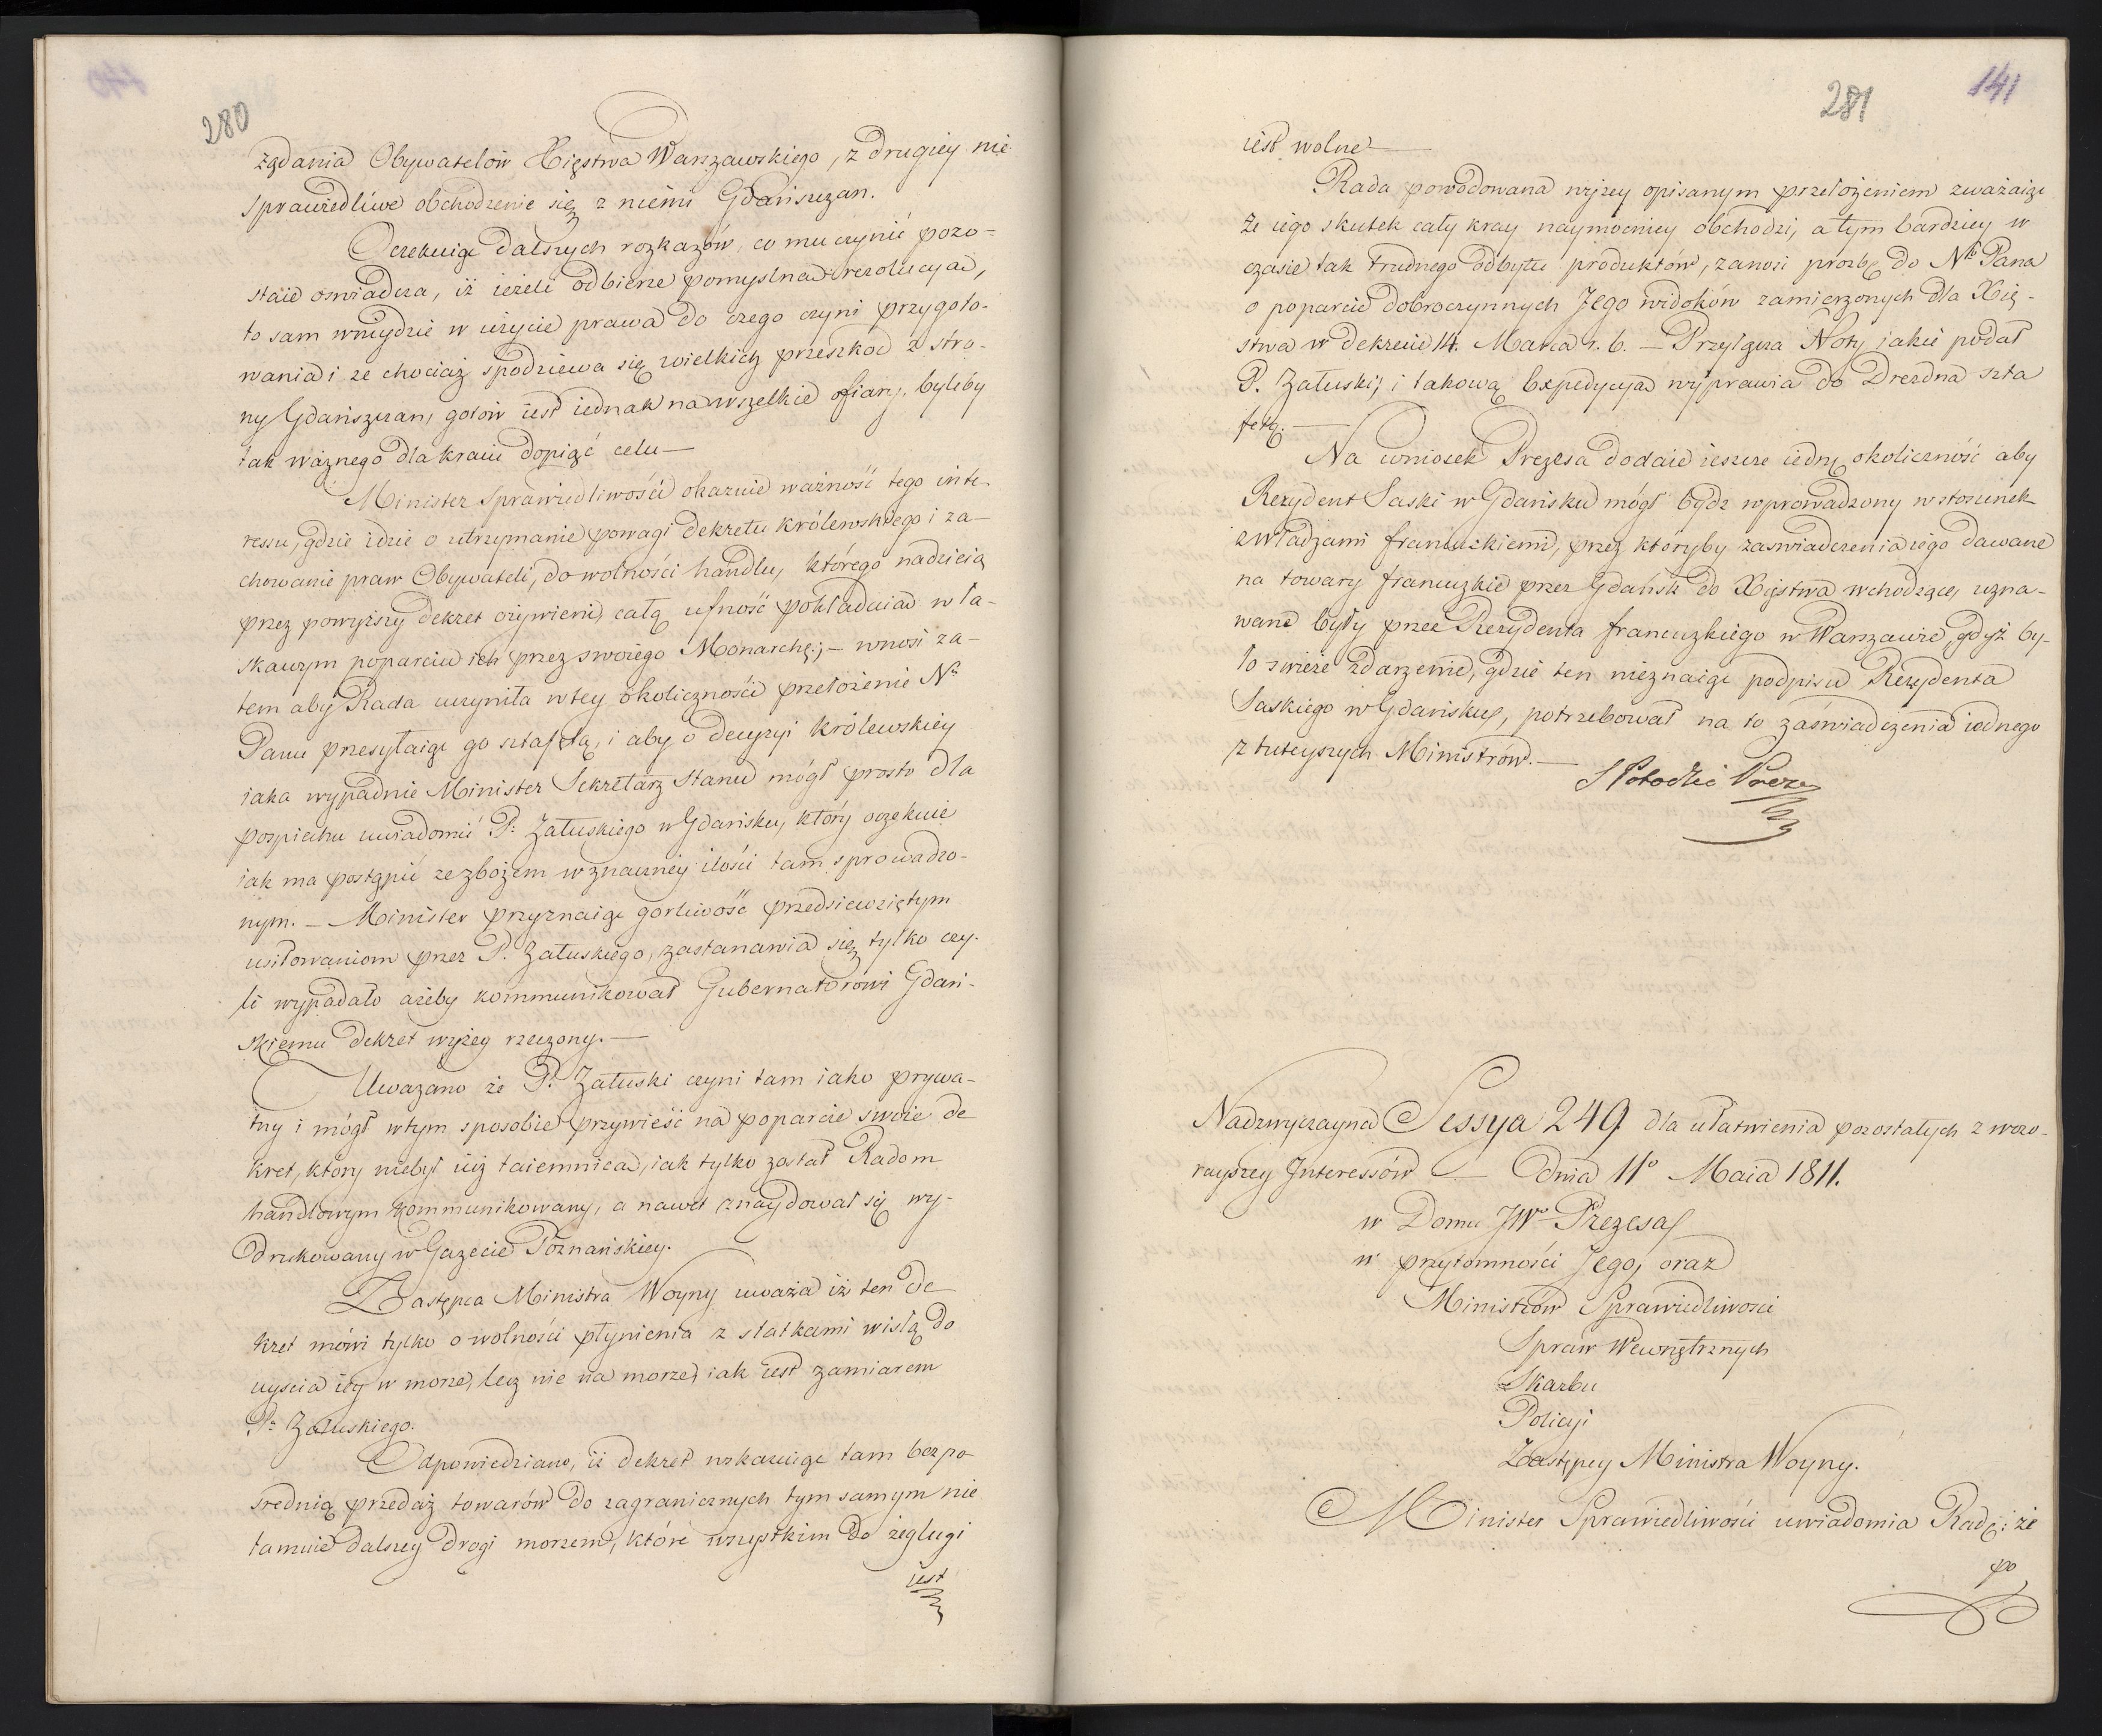 280
żądania Obywatelów Xięstwa Warszawskiego, z drugiey nie
sprawiedliwe obchodzenie się z niemi Gdańszczan.
Oczekuiąc dalszych rozkazów, co mu czynić pozo-
staie oswiadcza, iż ieżeli odbierze pomyslną rezolucyą,
to sam wnydzie w użycie prawa do czego czyni przygoto-
wania i że chociaż spodziewa się wielkich przeszkod z stro-
ny Gdańszczan, gotów iest iednak na wszelkie ofiary, byleby
tak ważnego dla kraiu dopiąć celu —
Minister Sprawiedliwości okazuie ważność tego inte-
ressu, gdzie idzie o utrzymanie powagi Dekretu królewskiego i za-
chowanie praw Obywateli, do wolności handlu, którego nadzieią
przez powyższy dekret ożywieni, całą ufność pokładaią w ła-
skawym poparciu ich przez swoiego Monarchę; – wnosi za-
tem aby Rada uczyniła w tey okoliczności przełożenie N.
Panu przesyłaiąc go sztafetą, i aby o decyzyi królewskiey
iaka wypadnie Minister Sekretarz Stanu mógł prosto dla
pospiechu uwiadomić P. Załuskiego w Gdańsku, który oczekuie
iak ma postąpić ze zbożem w znaczney ilości tam sprowadzo-
nym. – Minister przyznaiąc gorliwość przedsiewziętym
usiłowaniom przez P. Załuskiego, zastanawia się tylko czy-
li wypadało ażeby kommunikował Gubernatorowi Gdań-
skiemu dekret wyżey rzeczony. —
Uważano że P. Załuski czyni tam iako prywa-
tny i mógł w tym sposobie przywieść na poparcie swoie de
kret, który niebył iuż taiemnicą, iak tylko został Radom
handlowym kommunikowany, a nawet znaydował się wy-
drukowany w Gazecie Poznańskiey.
Zastępca Ministra Woyny uważa iż ten de
kret mówi tylko o wolności płynienia z statkami wisłą do
uyscia iey w morze, lecz nie na morze, iak iest zamiarem
P. Załuskiego.
Odpowiedziano, iż dekret wskazuiąc tam bezpo-
srednią przedaż towarów do zagranicznych tym samym nie
tamuie dalszey drogi morzem, które wszystkim do żeglugi
iest
281
141
iest wolne —
Rada powodowana wyżey opisanym przełożeniem zważaiąc
że iego skutek cały kray naymocniey obchodzi, a tym bardziey w
czasie tak trudnego odbytu produktów, zanosi prozbę do N. Pana
o poparcie dobroczynnych Jego widoków zamierzonych dla Xię-
stwa w dekrecie 14. Marca r. b. – Przyłącza Noty jakie podał
P. Załuski; i takową Expedycyą wyprawia do Drezdna szta
fetą. —
Na wniosek Prezesa dodaie ieszcze iednę okoliczność aby
Rezydent Saski w Gdańsku mógł bydz wprowadzony w stosunek
z władzami francuzkiemi, przez któryby zaswiadczenia iego dawane
na towary francuzkie przez Gdańsk do Xięstwa wchodzące, uzna-
wane były przez Rezydenta francuzkiego w Warszawie, gdyż by-
ło świeże zdarzenie, gdzie ten nieznaiąc podpisu Rezydenta
Saskiego w Gdańsku, potrzebował na to zaświadczenia iednego
z tuteyszych Ministrów. —
S Potocki Prezes
Nadzwyczayna Sessya 249 dla ułatwienia pozostałych z wczo-
rayszey Interessów — Dnia 11o Maia 1811.
w Domu JWo Prezesa
w przytomności Jego, oraz
Ministrów Sprawiedliwosci
Spraw Wewnętrznych
Skarbu
Policyi
Zastępcy Ministra Woyny.
Minister Sprawiedliwości uwiadomia Radę; że
po